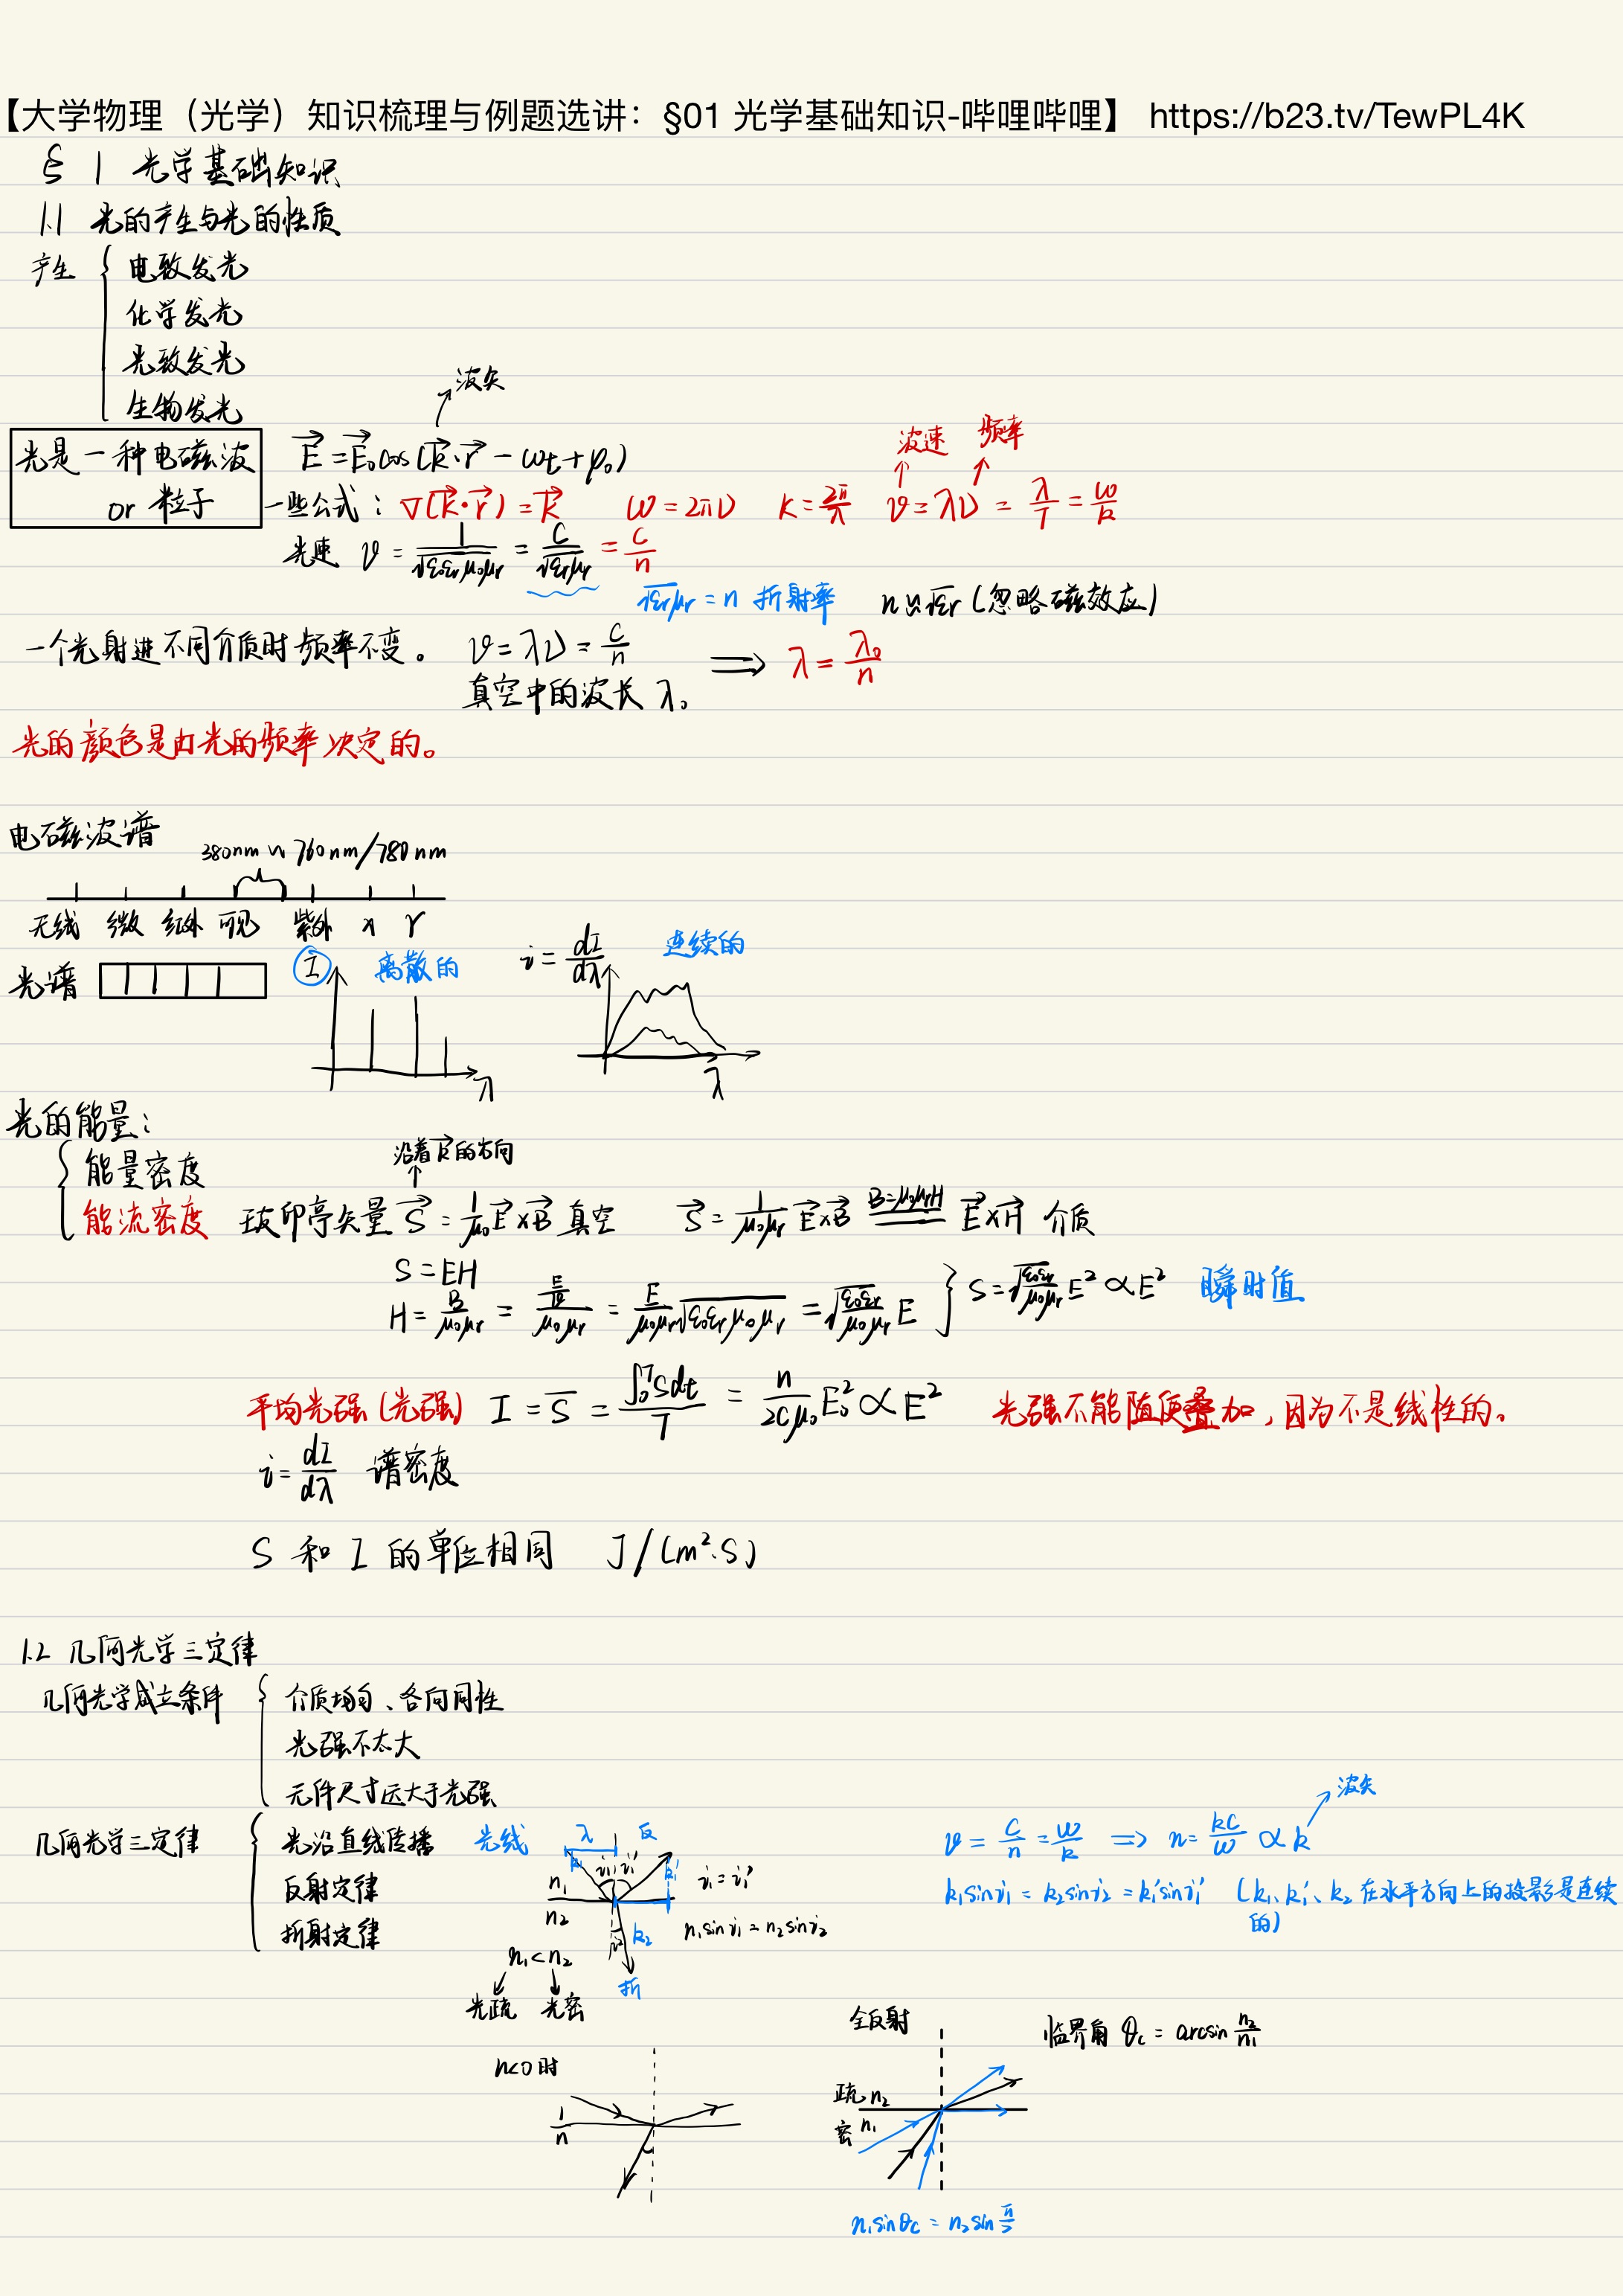 【大学物理（光学）知识梳理与例题选讲：§01 光学基础知识-哔哩哔哩】 https://b23.tv/TewPL4K
§ 1 光学基础知识
1.1 光的产生与光的性质
产生 { 电致发光
化学发光
光致发光
生物发光
波矢
光是一种电磁波 or 粒子
E⃗ = E⃗₀cos(k⃗·r⃗ - ωt + φ₀)
波速 频率
一些公式：∇(k⃗·r⃗) = k⃗ ω = 2πν k = 2π/λ v = λν = λ/T = ω/k
光速 v = 1/√(ε₀εᵣμ₀μᵣ) = c/√(εᵣμᵣ) = c/n
√(εᵣμᵣ) = n 折射率 n≈√εᵣ (忽略磁效应)
一个光射进不同介质时频率不变。 v = λν = c/n ⟹ λ = λ₀/n
真空中的波长 λ₀
光的颜色是由光的频率决定的。
电磁波谱
380nm ~ 760nm/780nm
无线 微 红外 可见 紫外 x γ
光谱 I 离散的 λ
i = dI/dλ 连续的 λ
光的能量：
沿着k⃗的方向
{ 能量密度
能流密度 玻印亭矢量 S⃗ = 1/μ₀ E⃗×B⃗ 真空 S⃗ = 1/(μ₀μᵣ) E⃗×B⃗ =(B=μ₀μᵣH)= E⃗×H⃗ 介质
S = EH
H = B/(μ₀μᵣ) = (E/v)/(μ₀μᵣ) = E/(μ₀μᵣ) √(ε₀εᵣμ₀μᵣ) = √(ε₀εᵣ/μ₀μᵣ) E } S = √(ε₀εᵣ/μ₀μᵣ) E² ∝ E² 瞬时值
平均光强 (光强) I = S̄ = ∫₀ᵀSdt/T = n/(2cμ₀) E₀² ∝ E² 光强不能随便叠加，因为不是线性的。
i = dI/dλ 谱密度
S 和 I 的单位相同 J/(m²·s)
1.2 几何光学三定律
几何光学成立条件 { 介质均匀、各向同性
光强不太大
元件尺寸远大于光强
波矢
几何光学三定律 { 光沿直线传播 光线
反射定律
折射定律
λ 反
k₁ i₁ i₁' k₁'
n₁
n₂
i₁ = i₁'
n₁sini₁ = n₂sini₂
i₂ k₂
折
n₁<n₂
光疏 光密
v = c/n = ω/k ⟹ n = kc/ω ∝ k
k₁sini₁ = k₂sini₂ = k₁'sini₁' (k₁、k₁'、k₂ 在水平方向上的投影是连续的)
n<0时
1
n
全反射
临界角 θc = arcsin n₂/n₁
疏 n₂
密 n₁
n₁sinθc = n₂sin π/2